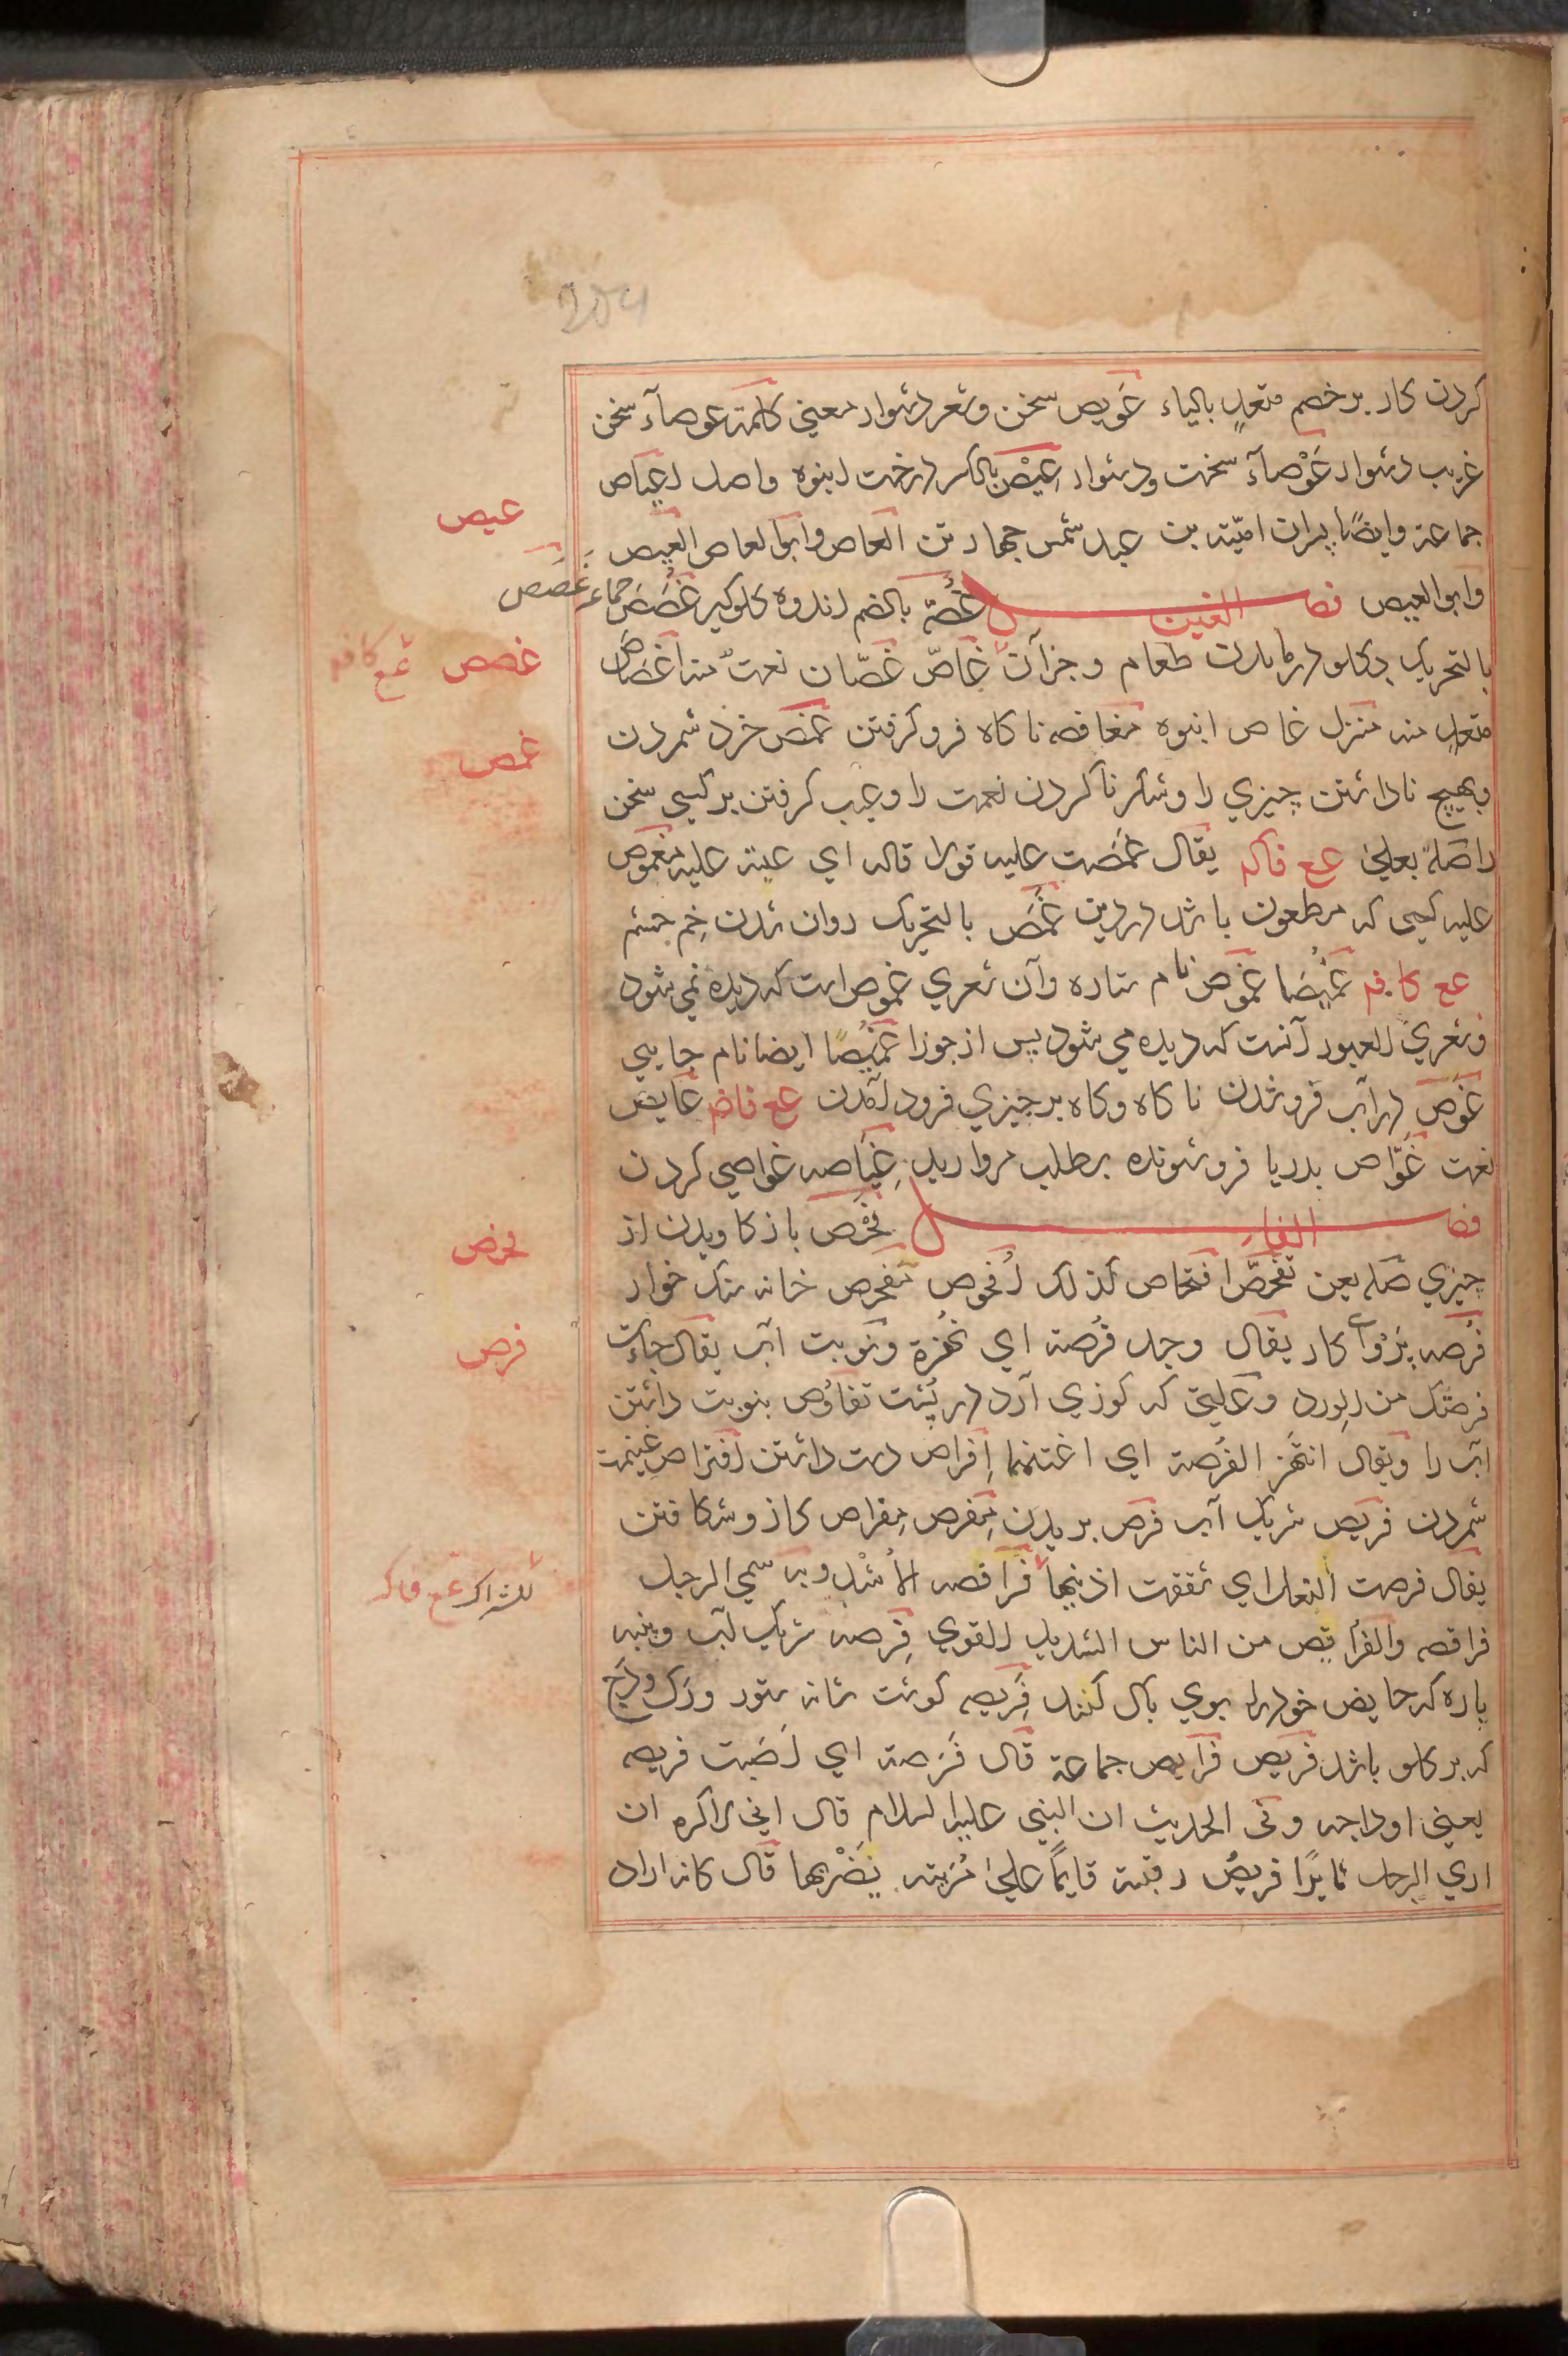 204
کردن کار بر خصم متعدٍ بالیاء عَویص سخن و شعر دشوار معنی کلمة عوصآء سخن
غریب دشوار عَوْصآء سخت و دشوار عِیْص بالکسر درخت انبوه و اصل اعیاص
جماعة و ایضًا پسران امیّة بن عبد شمس چهار تن العاص و ابو العاص العیص
و ابو العیص فصل الغین غُصّه بالضم اندوه کلوکیر غُصَص جماعة غَصَص
بالتحریک در کلو در ماندن طعام و جز آن غاصّ غصّان نعت منه اغصاص
متعدٍ منه منزل غاص انبوه مغافصه ناکاه فرو کرفتن غمص خرد شمردن
و بهیچ ناداشتن چیزی را و شکر ناکردن نعمت را و عیب کرفتن بر کسی سخن
را صَله بعلی عع فاکم یقال غمَصت علیه قولا قاله ای عبته علیه مغموص
علیه کسی که مطعون باشد در دین غَمَص بالتحریک روان شدن خم چشم
عع کافم غُمَیْصَا غَمُوص نام ستاره و آن شعری غموص است که دیده نمی شود
و شعری العبور آنست که دیده می شود پس از جوزا غُمَیْصًا ایضا نام جایی
غَوص در آب فرو شدن ناکاه و کاه بر چیزی فرود آمدن عع فاضم غایص
نعت غوّاص بدریا فروشونده بطلب مروارید غِیاصه غواصی کردن
فصل الفاء فَحْص باز کاویدن از
چیزی صَله بعن تفحّص افتحاص کذلک اُفحوص مَفحص خانه سنک خوار
فُرصه پَرْوای کار یقال وجد فُرصة ای نهزة و نوبت آب یقال جاءت
فرصتک من الورد و علتی که کوزی آرد در پشت تفاوص بنوبت داشتن
آب را و یقال انتهز الفُرصة ای اغتنمها اِفراص دست داشتن افتراص غنیمت
شمردن فریص شریک آب فرص بریدن مِفرص مِفراص کاز و شکافتن
یقال فرصت النعل ای شققت اذنیها فُرافصه الاسْد و به سمی الرجل
فرافصه و الفُرافِص من الناس الشدید القوی فِرصه شریک آب و پنبه
پاره که حایض خود را بوی پاک کنند فَریصه کوشت شانه ستور و رک و دَج
که بر کلو باشد فریص فرایص جماعة قال فَرَصة ای اَصَبت فریصه
یعنی اوداجه و فی الحدیث ان النبی علیه السلام قال انی لاکره ان
اری الرجل ثایرًا فریصُ رقبته قایمًا علی مُریته یَضْربها قال کانه اراد
عیص
غصص عع کافم
غمص
فحص
فرص
للشراک عع فاکم